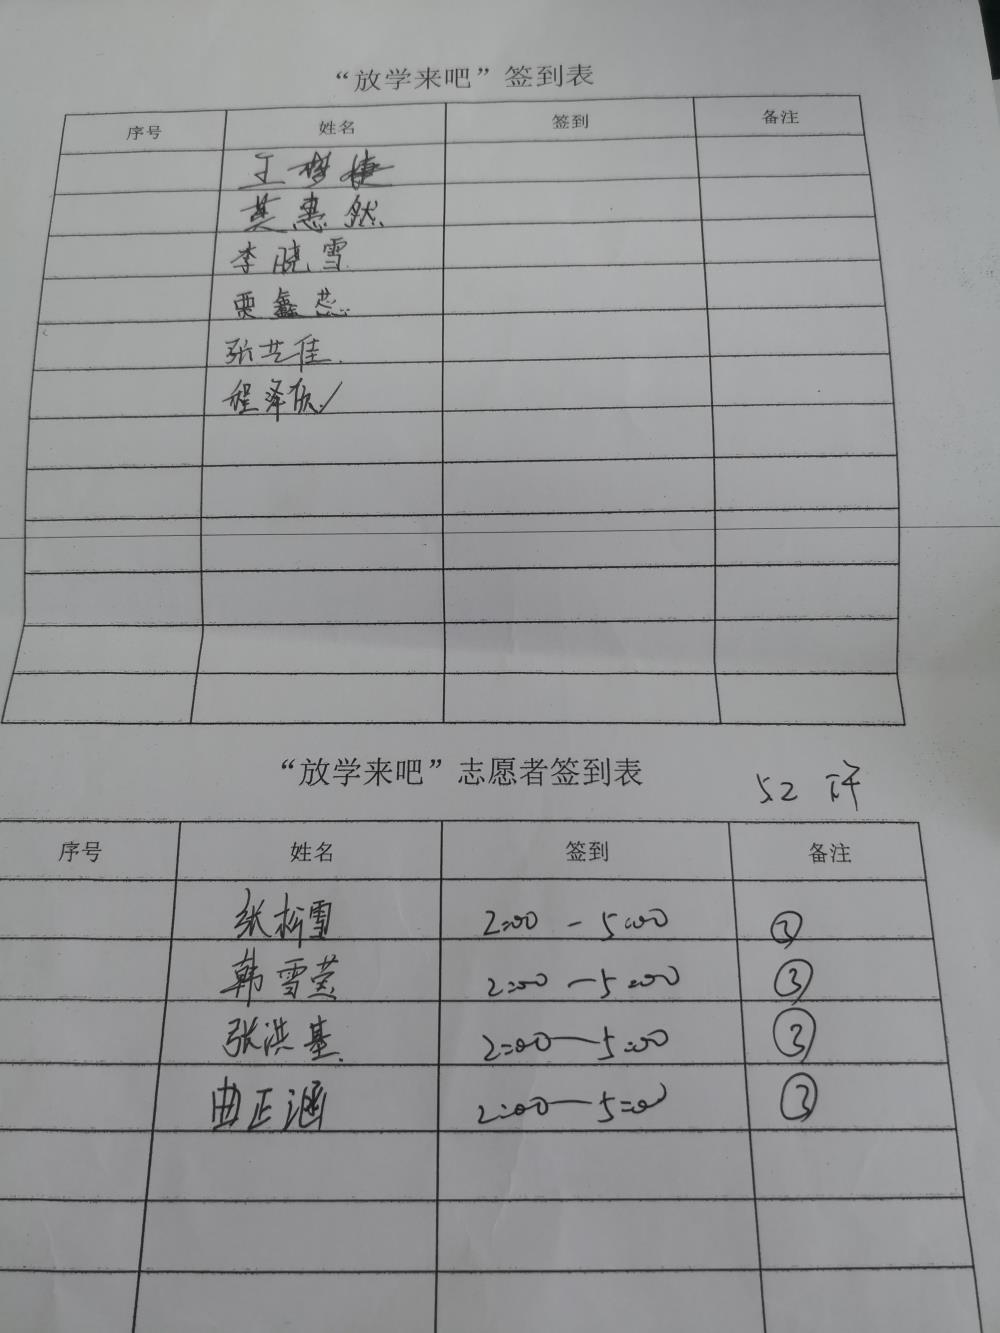 “放学来吧”签到表
序号 姓名 签到 备注
王梦捷
莫惠然
李晓雪
贾鑫蕊
张艺佳
程泽欣
“放学来吧”志愿者签到表 52
序号 姓名 签到 备注
张松雪 2:00-5:00 ③
韩雪莹 2:00-5:00 ③
张洪基 2:00-5:00 ③
曲正涵 2:00-5:00 ③